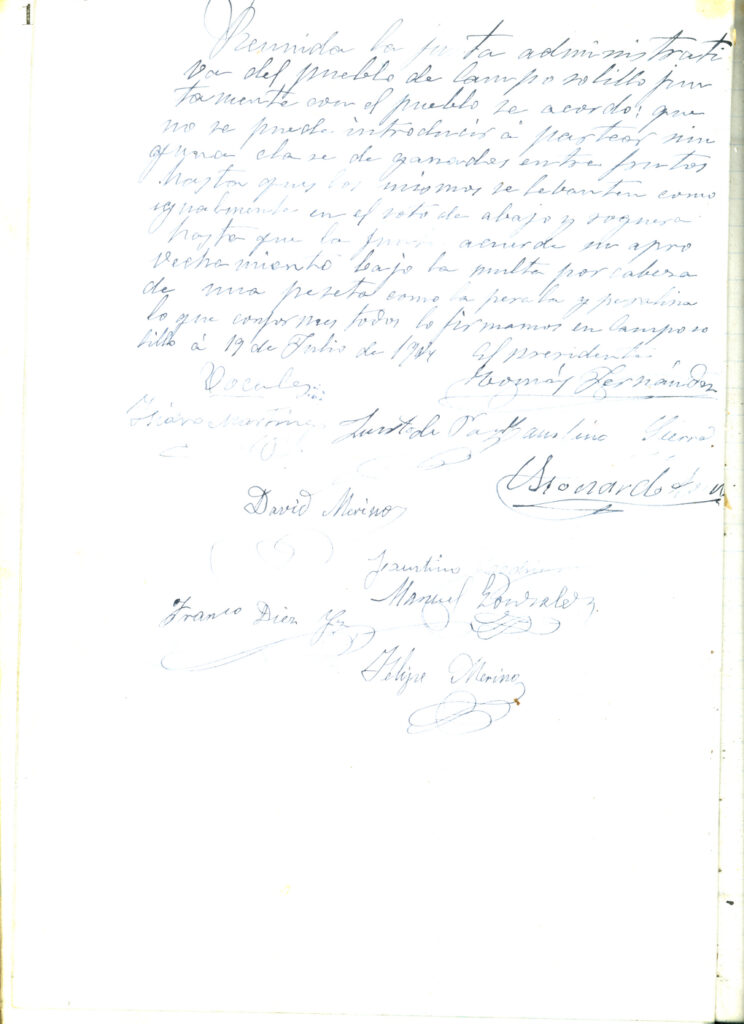 Reunida la junta administrati
va del pueblo de Camposolillo jun
tamente con el pueblo se acordo: que
no se puede introducir á pastear nin
guna clase de ganados entre frutos
hasta que los mismos se lebanten como
igualmente en el soto de abajo y
hasta que la junta acuerde su apro
vechamiento bajo la multa por cabeza
de una peseta como la
lo que conformes todos lo firmamos en Camposo
lillo á 19 de Julio de El presidente
Vocales Tomás Fernández
Faustino Sierra
David Merino
Faustino
Manuel Gonzalez
Franco Diez
Felipe Merino